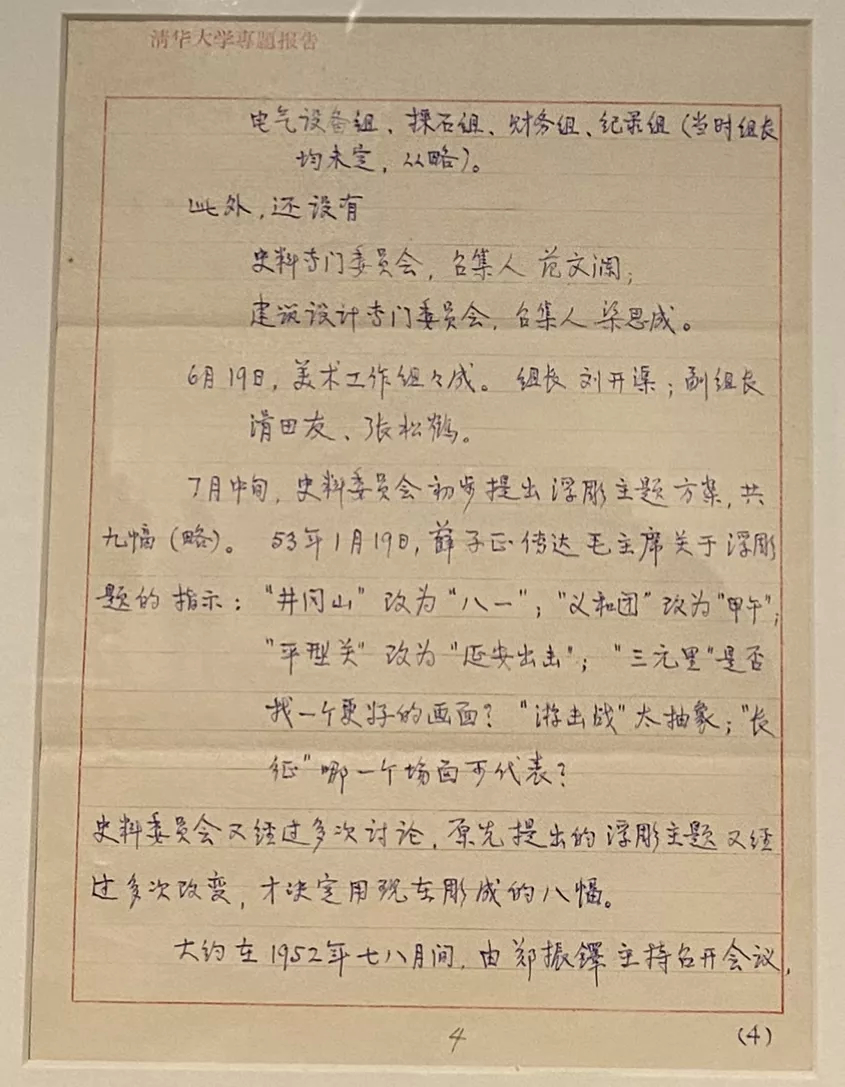 清华大学專題报告
电气设备组、採石组、财务组、纪录组(当时组长
均未定,从略)。
此外,还设有
史料专门委员会,召集人 范文澜;
建筑设计专门委员会,召集人 梁思成。
6月19日,美术工作组々成。 组长 刘开渠;副组长
滑田友、张松鹤。
7月中旬,史料委员会初步提出浮彫主题方案,共
九幅(略)。 53年1月19日,薛子正传达毛主席关于浮彫
题的指示:"井冈山"改为"八一";"义和团"改为"甲午";
"平型关"改为"延安出击"; "三元里"是否
找一个更好的画面? "游击战"太抽象;"长
征"哪一个场面可代表?
史料委员会又经过多次讨论,原先提出的浮彫主题又经
过多次改变,才决定用现在彫成的八幅。
大约在1952年七八月间,由郑振铎主持召开会议,
4
(4)